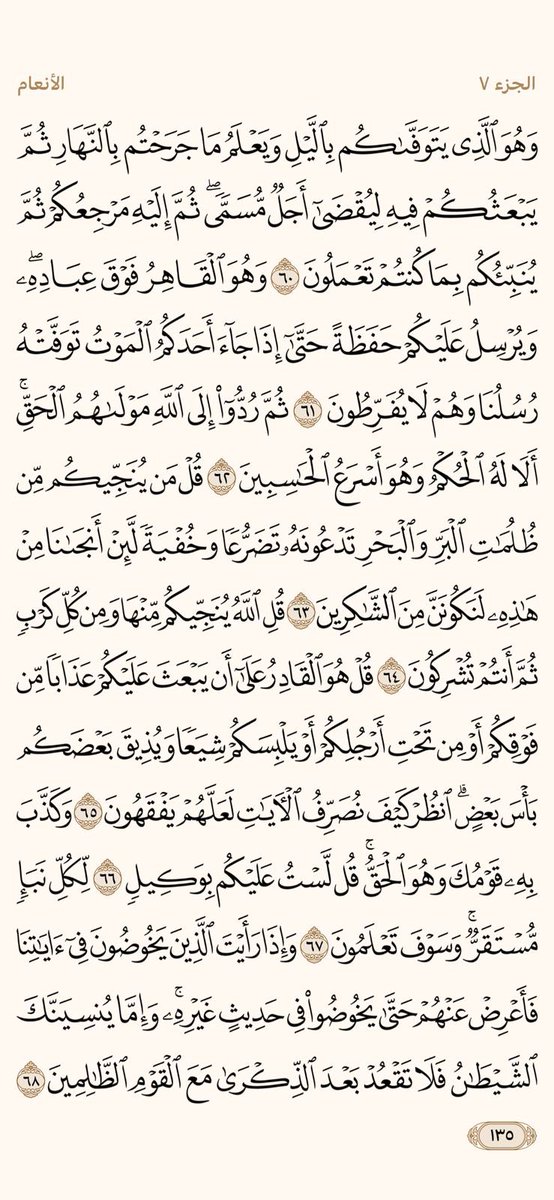 الجزء ٧ الأنعام
وَهُوَ ٱلَّذِى يَتَوَفَّىٰكُم بِٱلَّيْلِ وَيَعْلَمُ مَا جَرَحْتُم بِٱلنَّهَارِ ثُمَّ
يَبْعَثُكُمْ فِيهِ لِيُقْضَىٰٓ أَجَلٌ مُّسَمًّى ۖ ثُمَّ إِلَيْهِ مَرْجِعُكُمْ ثُمَّ
يُنَبِّئُكُم بِمَا كُنتُمْ تَعْمَلُونَ ٦٠ وَهُوَ ٱلْقَاهِرُ فَوْقَ عِبَادِهِۦ ۖ
وَيُرْسِلُ عَلَيْكُمْ حَفَظَةً حَتَّىٰٓ إِذَا جَآءَ أَحَدَكُمُ ٱلْمَوْتُ تَوَفَّتْهُ
رُسُلُنَا وَهُمْ لَا يُفَرِّطُونَ ٦١ ثُمَّ رُدُّوٓا۟ إِلَى ٱللَّهِ مَوْلَىٰهُمُ ٱلْحَقِّ ۚ
أَلَا لَهُ ٱلْحُكْمُ وَهُوَ أَسْرَعُ ٱلْحَـٰسِبِينَ ٦٢ قُلْ مَن يُنَجِّيكُم مِّن
ظُلُمَـٰتِ ٱلْبَرِّ وَٱلْبَحْرِ تَدْعُونَهُۥ تَضَرُّعًا وَخُفْيَةً لَّئِنْ أَنجَىٰنَا مِنْ
هَـٰذِهِۦ لَنَكُونَنَّ مِنَ ٱلشَّـٰكِرِينَ ٦٣ قُلِ ٱللَّهُ يُنَجِّيكُم مِّنْهَا وَمِن كُلِّ كَرْبٍ
ثُمَّ أَنتُمْ تُشْرِكُونَ ٦٤ قُلْ هُوَ ٱلْقَادِرُ عَلَىٰٓ أَن يَبْعَثَ عَلَيْكُمْ عَذَابًا مِّن
فَوْقِكُمْ أَوْ مِن تَحْتِ أَرْجُلِكُمْ أَوْ يَلْبِسَكُمْ شِيَعًا وَيُذِيقَ بَعْضَكُم
بَأْسَ بَعْضٍ ۗ ٱنظُرْ كَيْفَ نُصَرِّفُ ٱلْـَٔايَـٰتِ لَعَلَّهُمْ يَفْقَهُونَ ٦٥ وَكَذَّبَ
بِهِۦ قَوْمُكَ وَهُوَ ٱلْحَقُّ ۚ قُل لَّسْتُ عَلَيْكُم بِوَكِيلٍ ٦٦ لِّكُلِّ نَبَإٍ
مُّسْتَقَرٌّ ۚ وَسَوْفَ تَعْلَمُونَ ٦٧ وَإِذَا رَأَيْتَ ٱلَّذِينَ يَخُوضُونَ فِىٓ ءَايَـٰتِنَا
فَأَعْرِضْ عَنْهُمْ حَتَّىٰ يَخُوضُوا۟ فِى حَدِيثٍ غَيْرِهِۦ ۚ وَإِمَّا يُنسِيَنَّكَ
ٱلشَّيْطَـٰنُ فَلَا تَقْعُدْ بَعْدَ ٱلذِّكْرَىٰ مَعَ ٱلْقَوْمِ ٱلظَّـٰلِمِينَ ٦٨
١٣٥